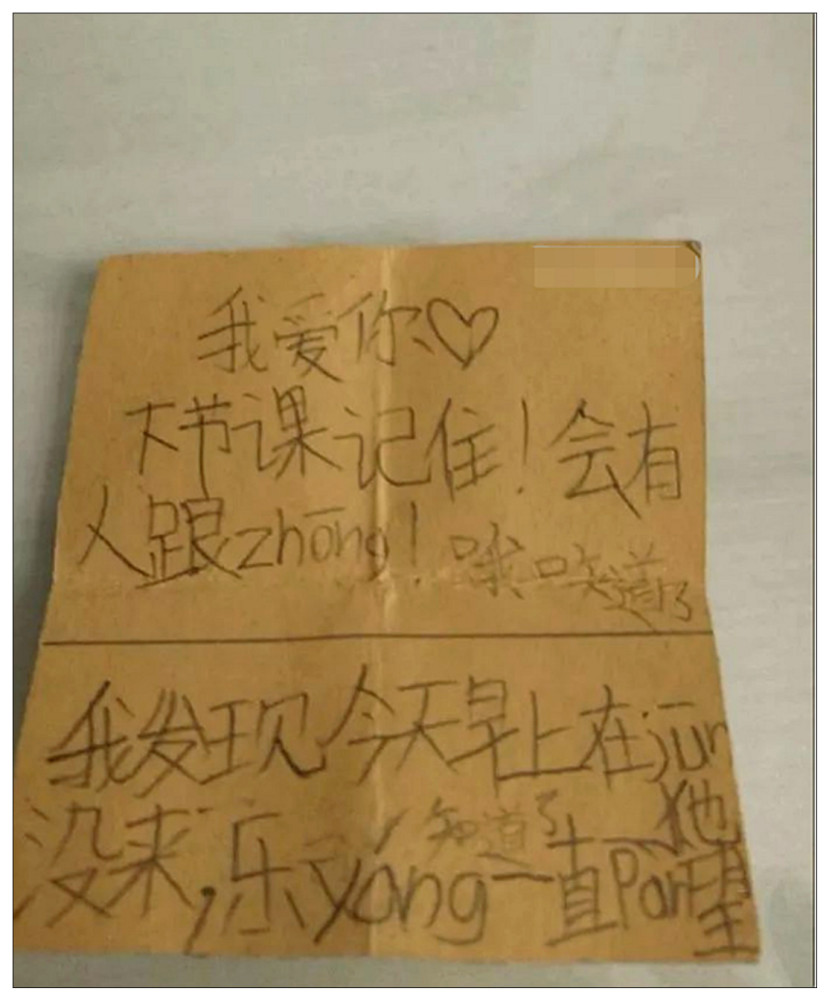 我爱你♡
下节课记住！会有
人跟zhōng！哦知道了
我发现今天早上在jūn
没来，乐yáng一直pàn望他
知道了